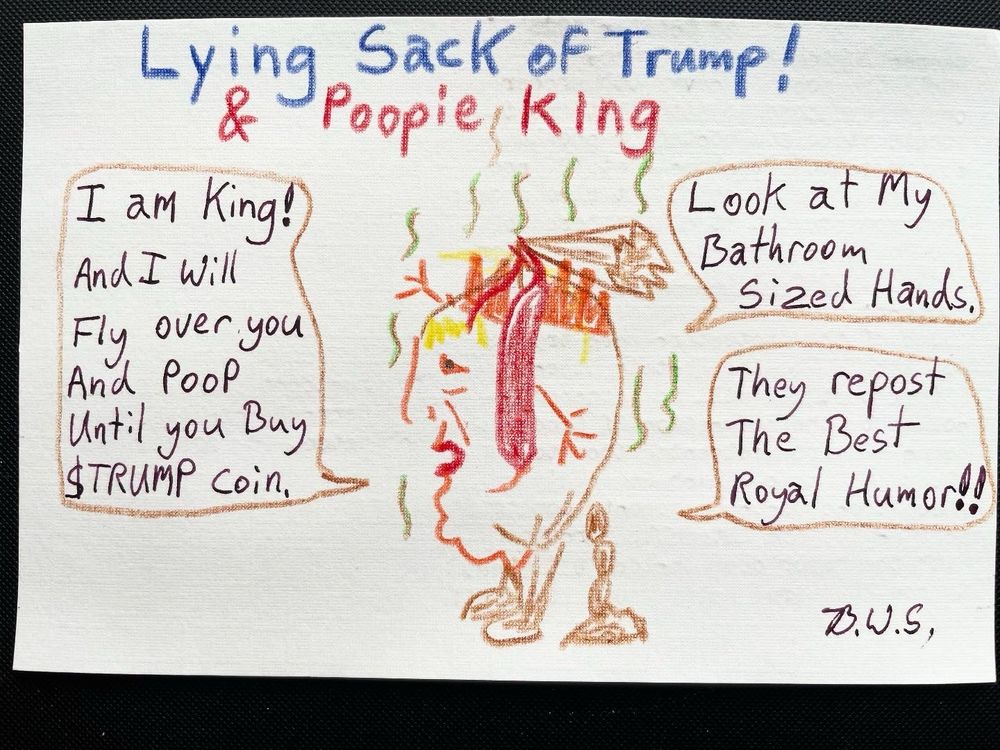 Lying Sack of Trump!
& Poopie King
I am King!
And I will
Fly over you
And Poop
Until you Buy
$TRUMP coin.
Look at My
Bathroom
Sized Hands.
They repost
The Best
Royal Humor!!
B.W.S.